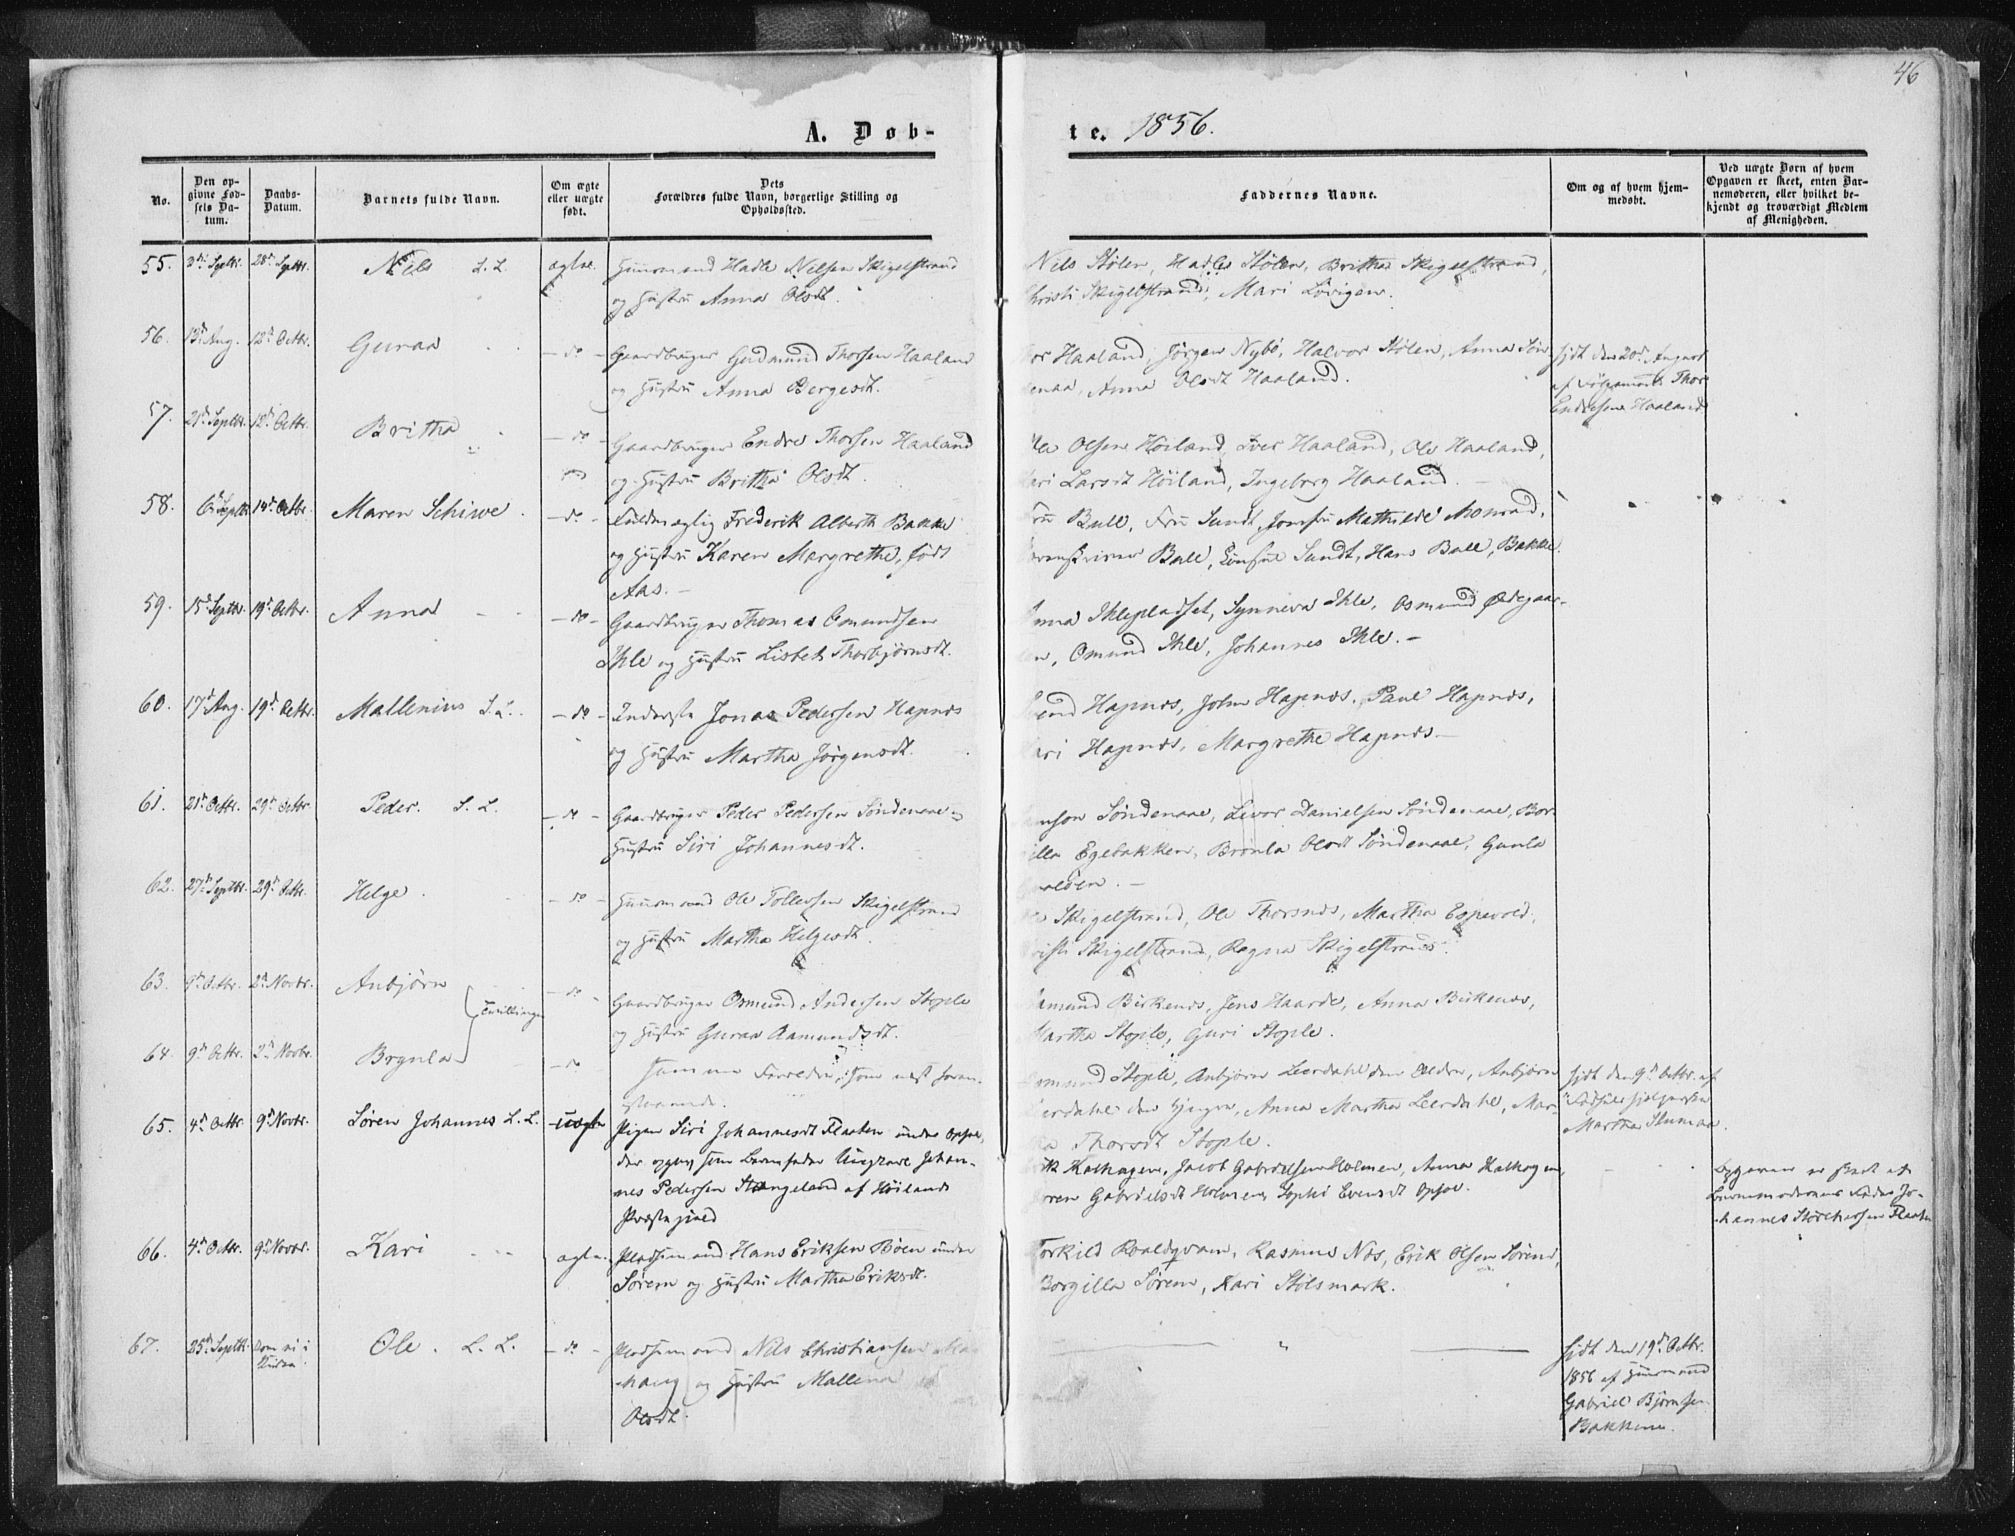 46
A. Døb-
te. 1856.
No.
Den op-
givne Fød-
sels Da-
tum.
Daabs-
Datum.
Barnets fulde Navn.
Om ægte
eller uægte
født.
Dets
Forældres fulde Navn, borgerlige Stilling og
Opholdssted.
Faddernes Navne.
Om og af hvem hjem-
medøbt.
Ved uægte Børn af hvem
Opgaven er skeet, enten Bar-
nemoderen, eller hvilket be-
kjendt og troværdigt Medlem
af Menigheden.
55. Septbr. 28 Septbr. Nils L. L. ægte. Huusmand Hadle Nilsen Skigelstrand
og Hustru Anna Olsdt.
Nils Stølen, Hadle Stølen, Britha Skigelstrand,
Christi Skigelstrand, Mari Løvigen.
56. 13d Aug. 12d Octbr. Guraa - do - Gaardbruger Gudmund Thorsen Haaland
og Hustru Anna Bergesdt.
Haaland, Jørgen Nybø, Halvor Stølen, Anna
Anna Olsdt Haaland.
hjdt den 20d August
af Thor
Endresen Haaland
57. 21d Septbr. 12d Octbr. Britha - do - Gaardbruger Endre Thorsen Haaland
og Hustru Britha Olsdt.
Olsen Høiland, Iver Haaland, Ole Haaland,
Larsdt Høiland, Ingeborg Haaland.
58. 6d Septbr. Octbr. Maren Schiwe - do - Fuldmægtig Frederik Alberth Bakke
og Hustru Karen Margrethe, født
Aas.
Fru Bull, Fru Sundt, Jomfru Mathilde Monrad,
Bull, Consul Sundt, Hans Bull, Bakke.
59. 15d Septbr. 19d Octbr. Anna - do - Gaardbruger Thomas Omundsen
Ihle og Hustru Lisbeth Thorbjørnsdt.
Anna Ihlepladset, Synneva Ihle, Osmund Ødegaar-
den, Omund Ihle, Johannes Ihle.
60. 17d Aug. 19d Octbr. Mallenius L. L. - do - Inderste Jonas Pedersen Hapnes
og Hustru Martha Jørgensdt.
Hapnes, John Hapnes, Paul Hapnes,
Hapnes, Margrethe Hapnes
61. 21d Octbr. 29d Octbr. Peder. L. L. - do - Gaardbruger Peder Pedersen Søndenaae og
Hustru Siri Johannesdt.
Søndenaae, Livor Danielsen Søndenaae, Bor-
gilla Egebakken, Brønla Olsdt Søndenaae, Gunla
62. 27d Septbr. 29d Octbr. Helge. - do - Huusmand Ole Tollefsen Skigelstrand
og Hustru Martha Helgesdt.
Skigelstrand, Ole Thorsnes, Martha Espevold,
Skigelstrand, Ragna Skigelstrand
63. Octbr. 2d Novbr. Anbjørn - do - Gaardbruger Osmund Andersen Stople
og Hustru Guraa Aamundsdt.
Tvillinger
Aamund Birkenes, Jens Haarde, Anna Birkenes,
Martha Stople, Guri Stople.
64. 9d Octbr. 2d Novbr. Brynla - do samme Forældre, som næst foran-
staaende.
Osmund Stople, Anbjørn Leerdahl den Ældre, Anbjørn
Leerdahl den Yngre, Anna Martha Leerdahl, Mar-
tha Thorsdt Stople.
hjdt den 9d Octbr. af
Martha
65. 4d Octbr. 9d Novbr. Søren Johannes L. L. uægte Pigen Siri Johannesdt Flaaten under Opsae,
der opgav som Barnefader Ungkarl Johan-
nes Pedersen Stangeland af Høilands
Præstegjæld
Kalhagen, Jacob Gabrielsen Holmen, Anna Kalhagen,
Gabrielsdt Holmen, Sophi Evensdt Opsae.
Opgaven er skeet af
Barnemoderens Fader Jo-
hannes Flaaten
66. 4d Octbr. 9d Novbr. Kari ægte. Pladsmand Hans Eriksen Bøen under
Sørem og Hustru Martha Eriksdt.
Torkild Roaldqvam, Rasmus Næs, Erik Olsen Sørem,
Borgilla Sørem, Kari Stølsmark.
67. 25d Septbr. Ole. L. L. - do - Pladsmand Nils Christiansen
og Hustru Mallena
Olsdt.
hjdt den 19d Octbr.
1856 af Huusmand
Gabriel Bjørnsen
Bakkene.